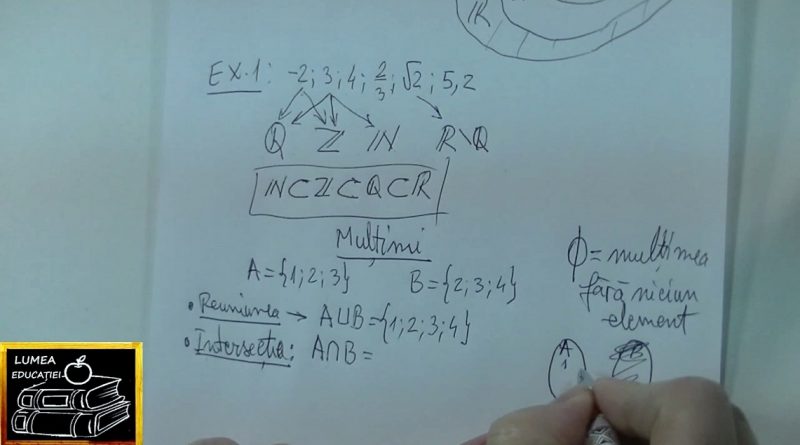 R
EX.1: -2; 3; 4; 2/3; √2; 5,2
Q Z N R\Q
N⊂Z⊂Q⊂R
Mulțimi
A={1;2;3} B={2;3;4}
• Reuniunea → A∪B={1;2;3;4}
• Intersecția: A∩B=
∅=mulțimea
fără niciun
element
A B
1
LUMEA
EDUCAȚIEI